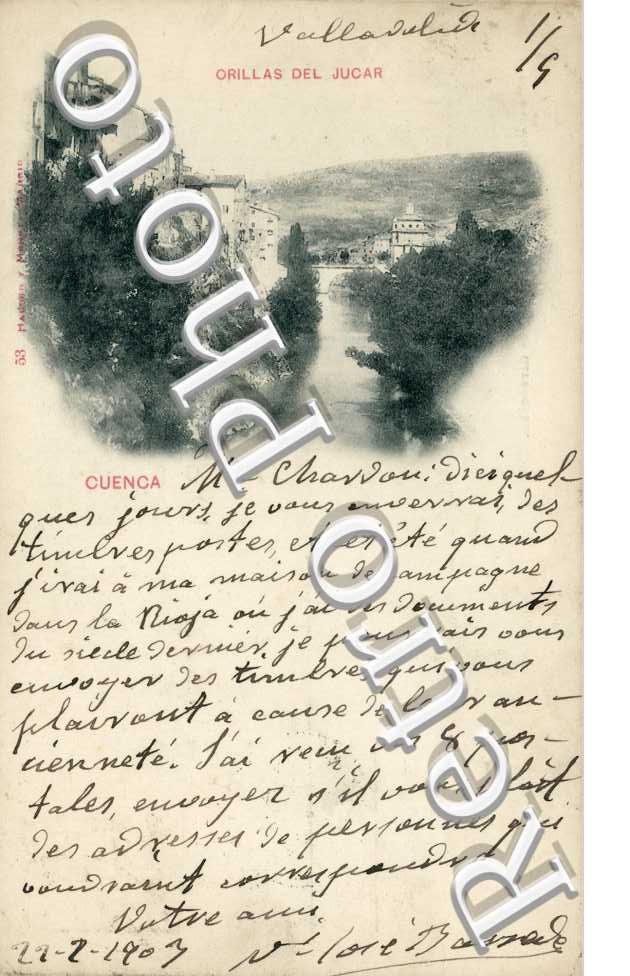 Valladolid 1/9
ORILLAS DEL JUCAR
53 HAUSER Y MENET. MADRID
CUENCA
Mr Chardon: d'ici quel-
ques jours, je vous enverrai, des
timbres postes, et cet été quand
j'irai à ma maison de campagne
dans la Rioja où j'ai des documents
du siècle dernier, je pourrais vous
envoyer des timbres qui vous
plairont à cause de leur an-
cienneté. J'ai reçu vos 8 pos-
tales, envoyez s'il vous plaît
des adresses de personnes qui
voudraient correspondre
Votre ami,
22-2-1903 José
Photo
Retro